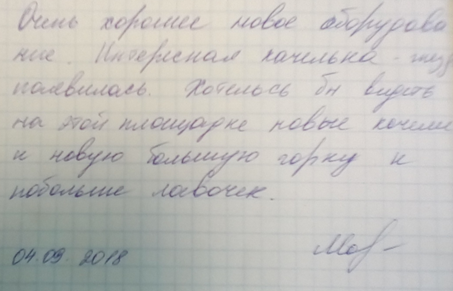 Очень хорошее новое оборудова
ние. Интересная качелька-гнез
появилась. Хотелось бы видеть
на этой площадке новые качели
и новую большую горку и
побольше лавочек.
04.09.2018